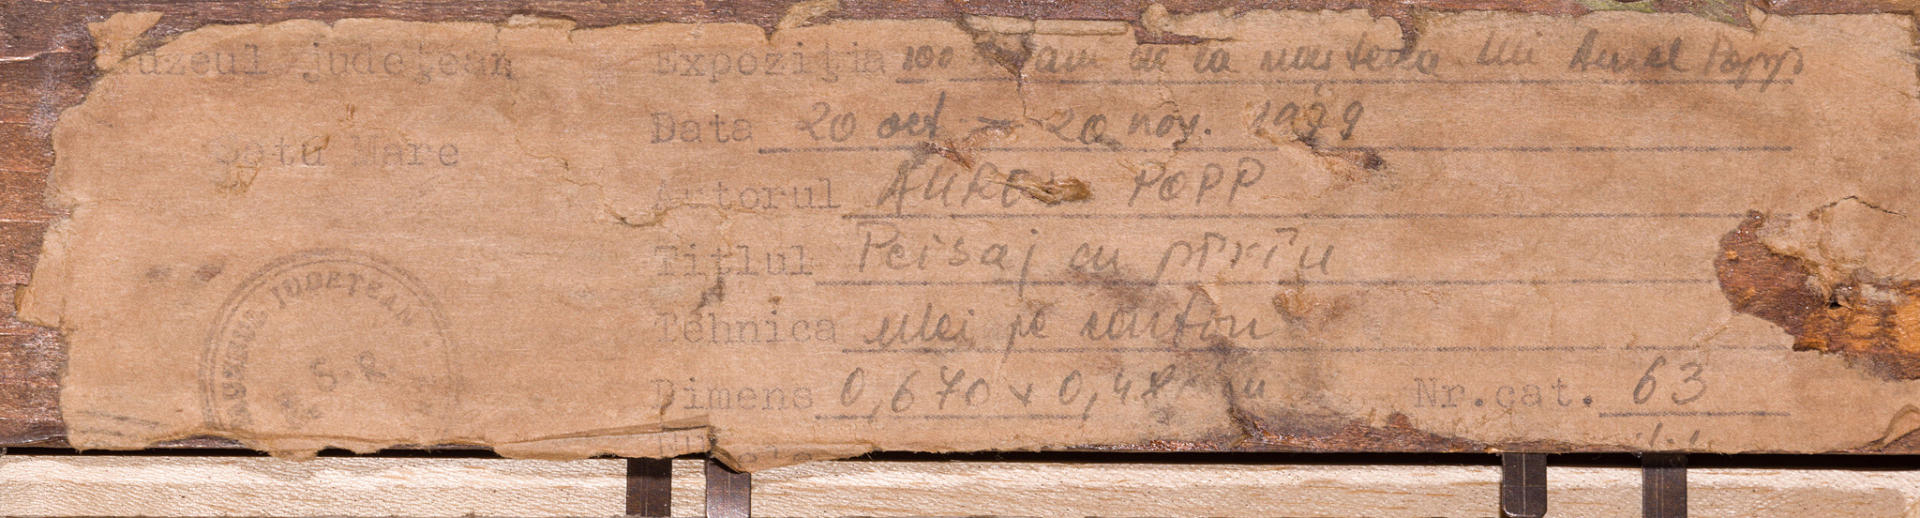 Muzeul județean
Satu Mare
MUZEUL JUDEȚEAN
S.R.
Expoziția 100 ani de la nașterea lui Aurel Popp
Data 20 oct – 20 nov. 1979
Autorul AUREL POPP
Titlul Peisaj cu pîrîu
Tehnica ulei pe carton
Dimens 0,670 x 0,48
Nr.cat. 63